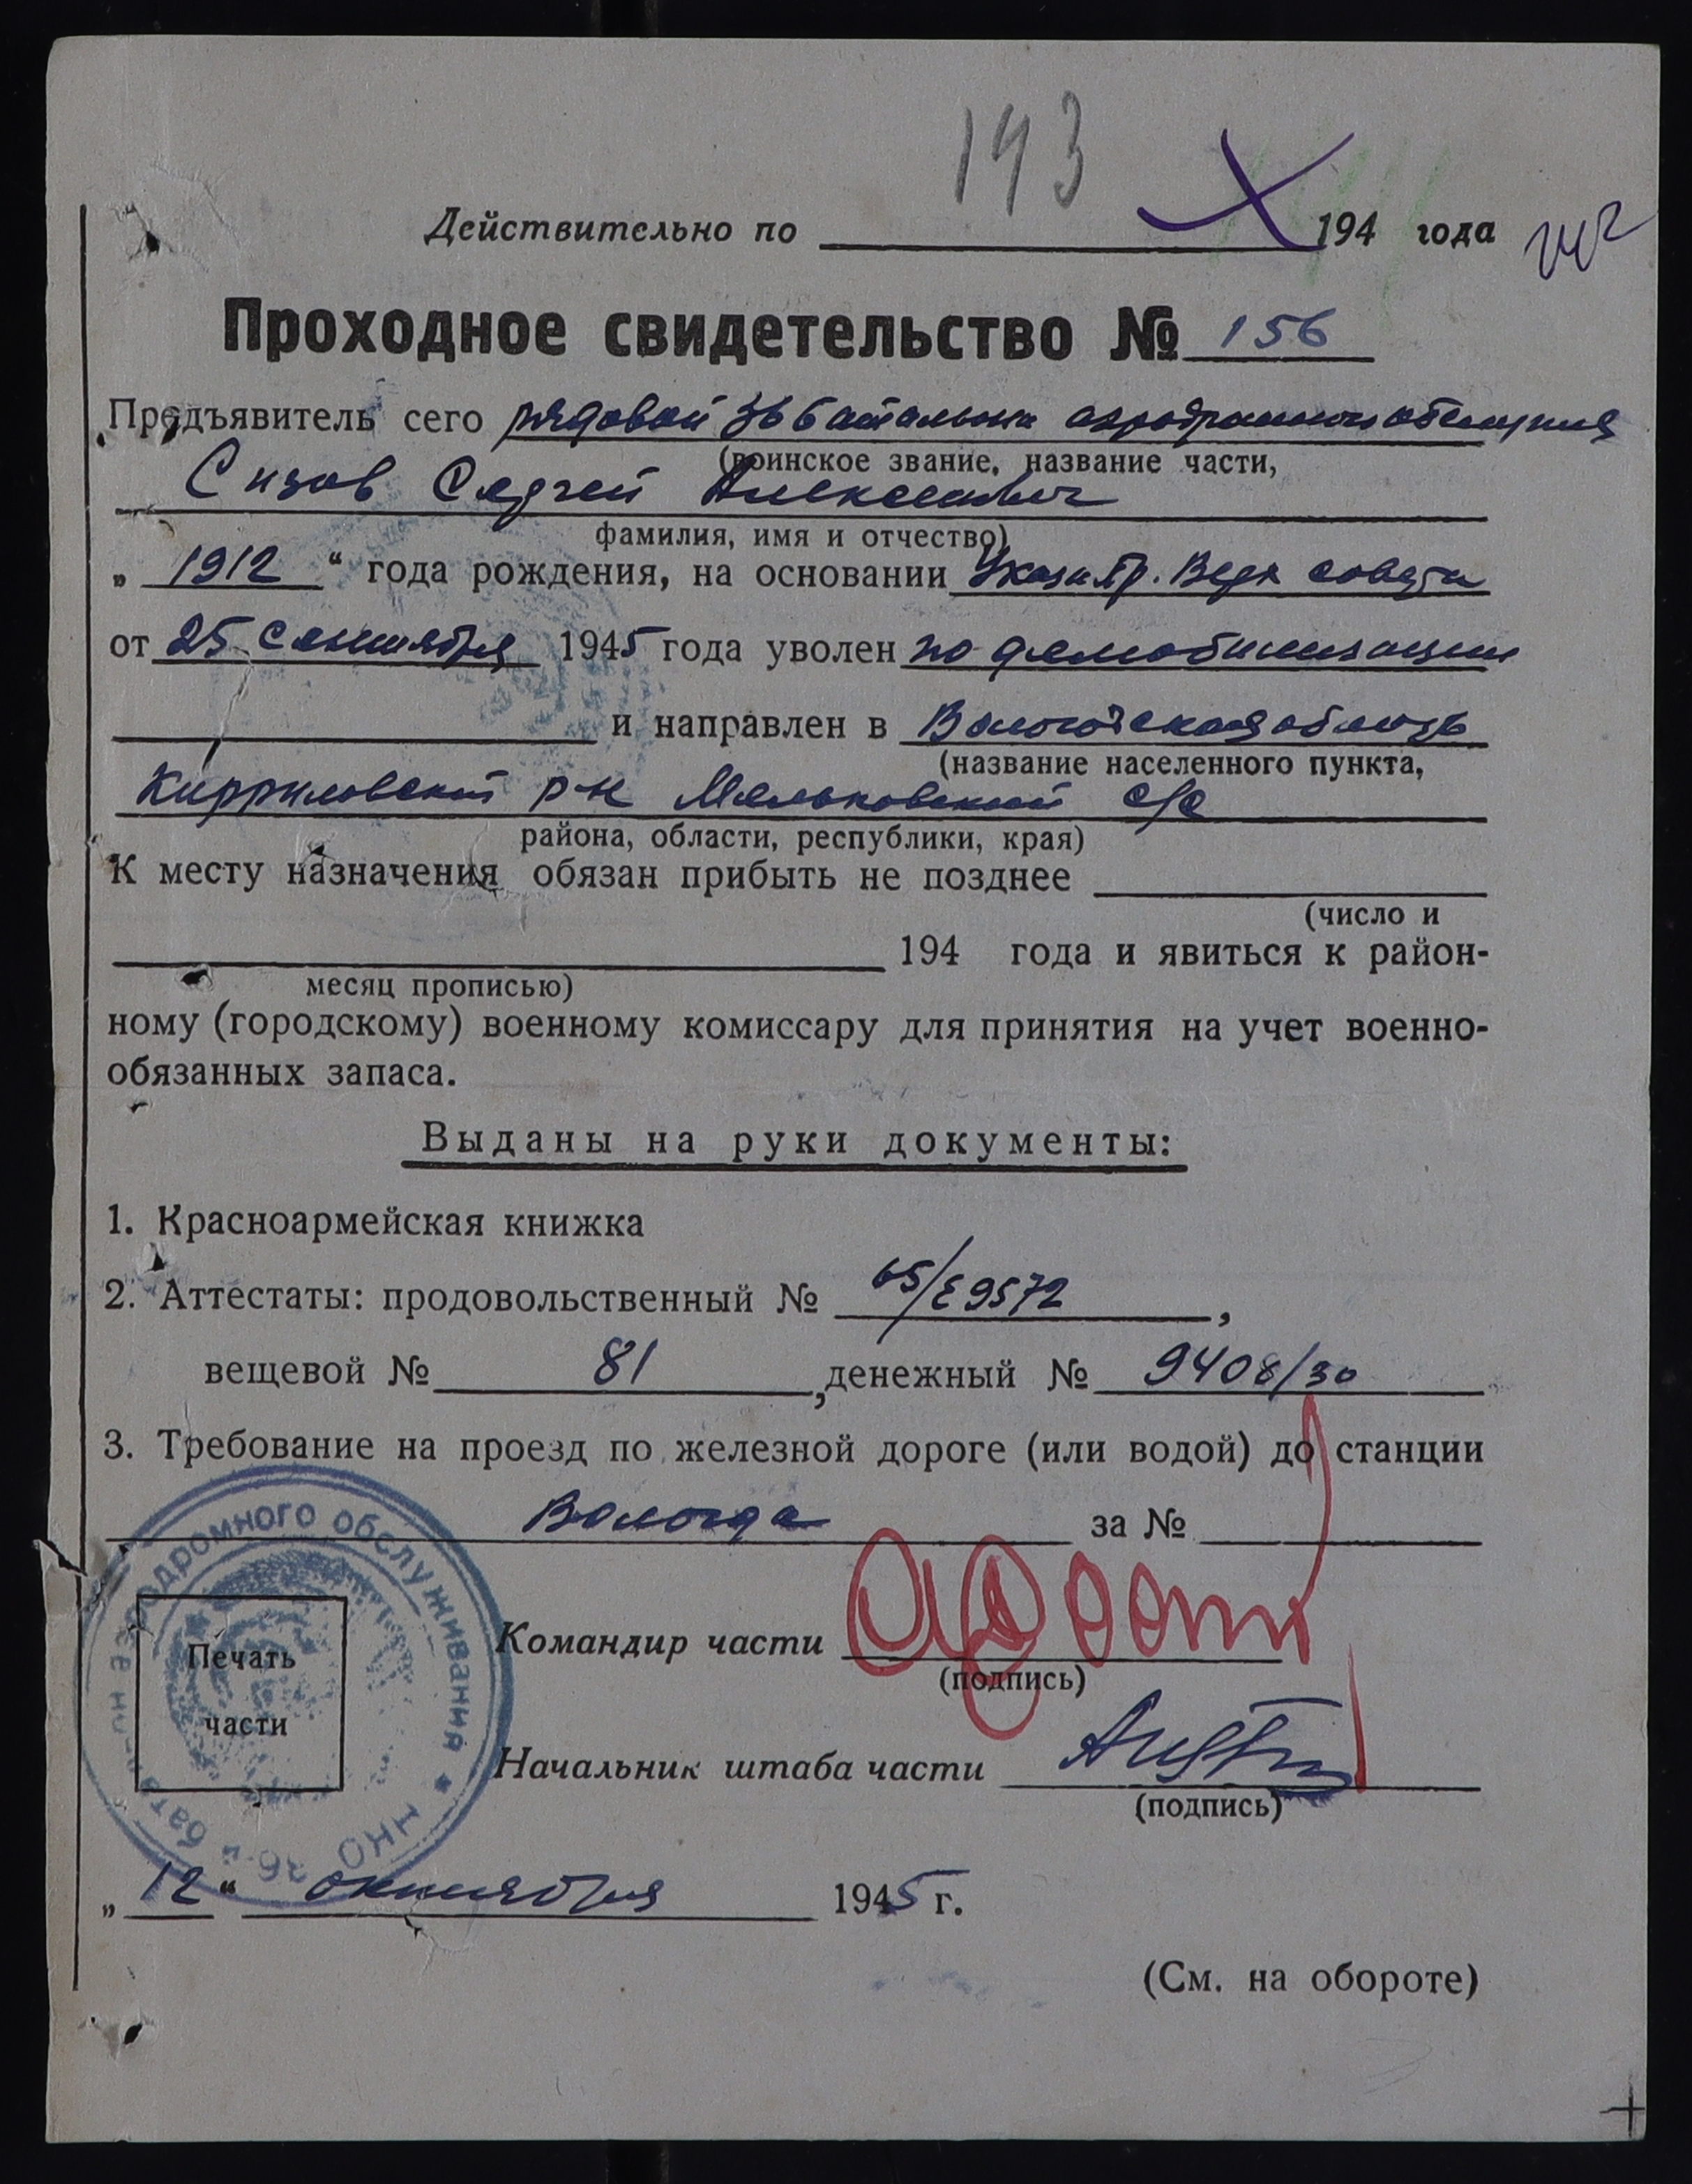 193
Действительно по 194 года
Проходное свидетельство № 156
Предъявитель сего рядовой 36 батальона
(воинское звание, название части,
Сизов Сергей Алексеевич
фамилия, имя и отчество)
„ 1912 “ года рождения, на основании Указа Пр. Верх совета
от 25 сентября 1945 года уволен по демобилизации
и направлен в Вологодская область
(название населенного пункта,
Кирриловский р-н с/с
района, области, республики, края)
К месту назначения обязан прибыть не позднее
(число и
194 года и явиться к район-
месяц прописью)
ному (городскому) военному комиссару для принятия на учет военно-
обязанных запаса.
Выданы на руки документы:
1. Красноармейская книжка
2. Аттестаты: продовольственный № 65/Е9572,
вещевой № 81, денежный № 9408/30
3. Требование на проезд по железной дороге (или водой) до станции
Вологда за №
аэродромного обслуживания ★ НКО 36-й
Печать
части
Командир части
(подпись)
Начальник штаба части
(подпись)
„ 12 “ октября 1945 г.
(См. на обороте)